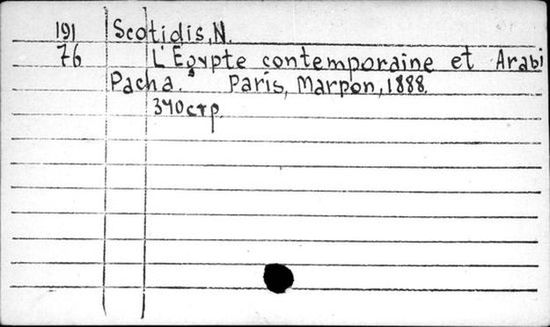 191 Scotidis, N.
76 L'Egypte contemporaine et Arabi
Pacha. Paris, Marpon, 1888.
340стр.